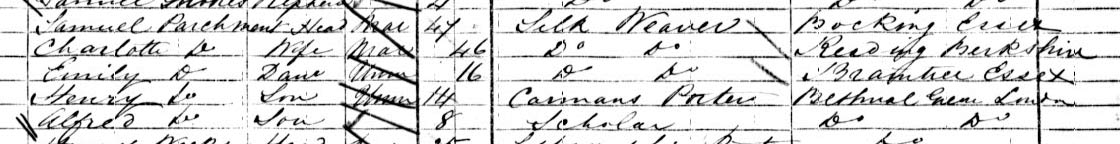 Samuel Parchment Head Mar 47 Silk Weaver Bocking Essex
Charlotte Do Wife Mar 46 Do Do Reading Berkshire
Emily Do Daur Unm 16 Do Do Braintree Essex
Henry Do Son Unm 14 Carmans Porter Bethnal Green London
Alfred Do Son 8 Scholar Do Do